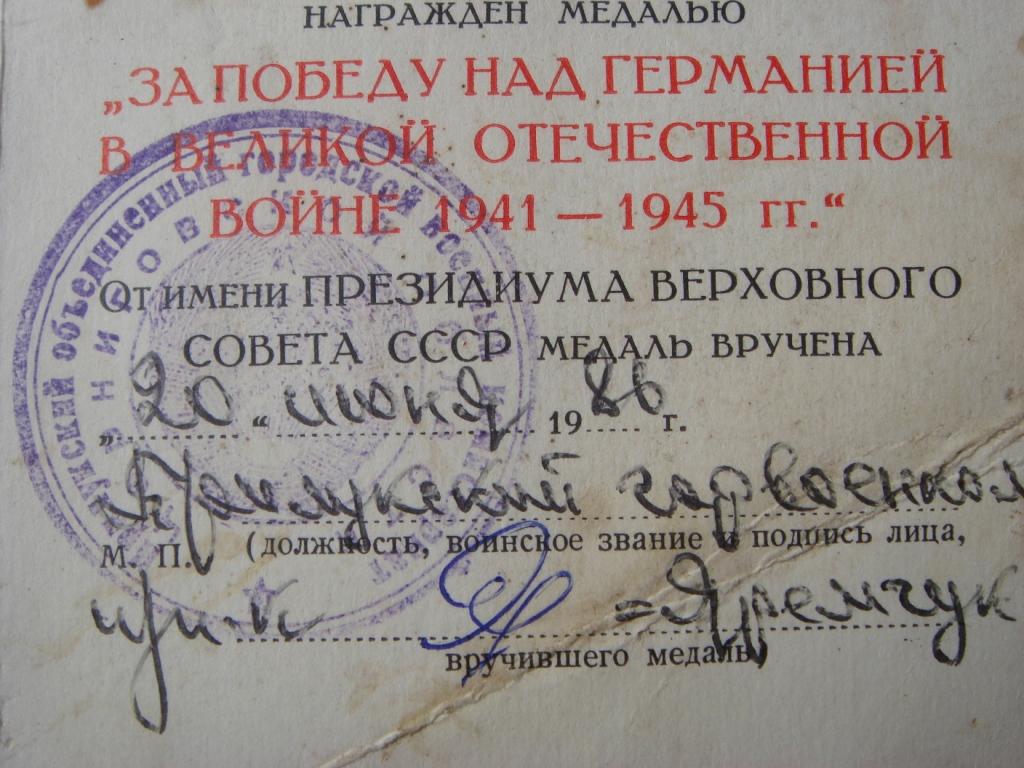 НАГРАЖДЕН МЕДАЛЬЮ
„ЗА ПОБЕДУ НАД ГЕРМАНИЕЙ
В ВЕЛИКОЙ ОТЕЧЕСТВЕННОЙ
ВОЙНЕ 1941 — 1945 гг.“
От имени ПРЕЗИДИУМА ВЕРХОВНОГО
СОВЕТА СССР медаль вручена
„20“ июня 1986 г.
Прилукский горвоенком
М. П. (должность, воинское звание и подпись лица,
п/п-к =Яремчук
вручившего медаль)
объединенный городской